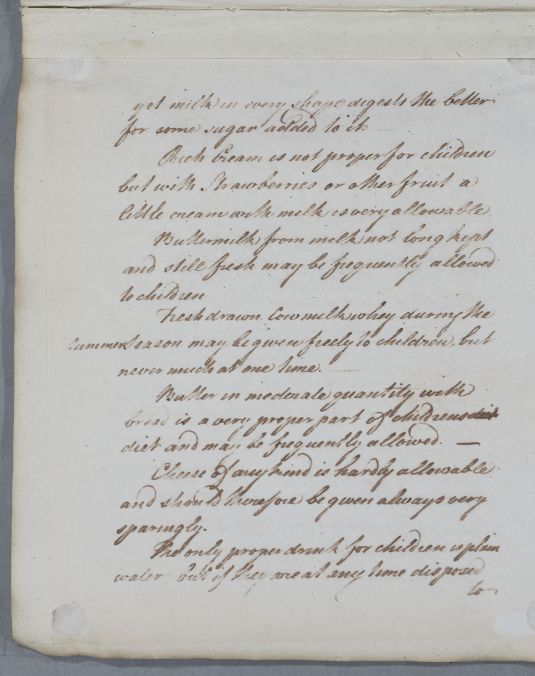 yet milk in every shape digests the better
for some sugar added to it.
Rich Cream is not proper for children
but with Strawberries or other fruit a
little cream with milk is very allowable
Buttermilk from milk not long kept
and still fresh may be frequently allowed
to children
Fresh drawn Cow milk whey during the
Summer Season may be given freely to children, but
never much at one time.
Butter in moderate quantity with
bread is a very proper part of childrens diet
diet and may be frequently allowed. —
Cheese of any kind is hardly allowable
and should therefore be given always very
sparingly.
The only proper drink for children is plain
water; but if they are at any time disposed
to